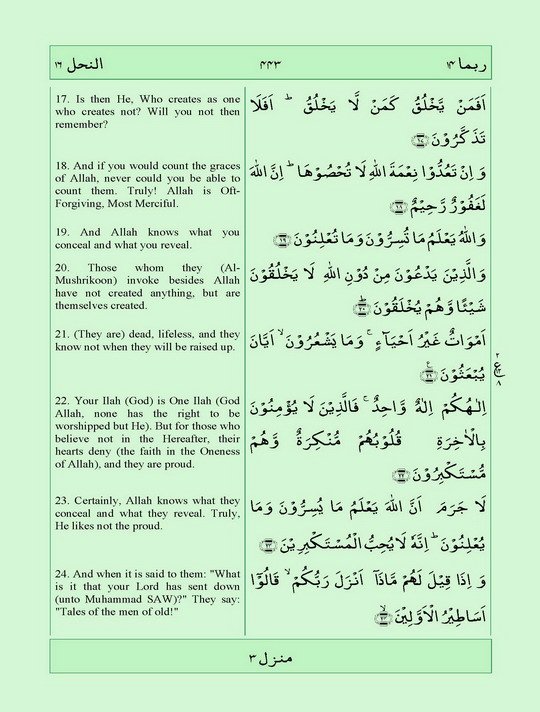 النحل ١٦
٤٤٣
ربما ١٤
17. Is then He, Who creates as one
who creates not? Will you not then
remember?
اَفَمَنْ يَّخْلُقُ كَمَنْ لَّا يَخْلُقُ ؕ اَفَلَا
تَذَكَّرُوْنَ ﴿۱۷﴾
18. And if you would count the graces
of Allah, never could you be able to
count them. Truly! Allah is Oft-
Forgiving, Most Merciful.
وَ اِنْ تَعُدُّوْا نِعْمَةَ اللّٰهِ لَا تُحْصُوْهَا ؕ اِنَّ اللّٰهَ
لَغَفُوْرٌ رَّحِيْمٌ ﴿۱۸﴾
19. And Allah knows what you
conceal and what you reveal.
وَاللّٰهُ يَعْلَمُ مَا تُسِرُّوْنَ وَمَا تُعْلِنُوْنَ ﴿۱۹﴾
20. Those whom they (Al-
Mushrikoon) invoke besides Allah
have not created anything, but are
themselves created.
وَالَّذِيْنَ يَدْعُوْنَ مِنْ دُوْنِ اللّٰهِ لَا يَخْلُقُوْنَ
شَيْـًٔا وَّهُمْ يُخْلَقُوْنَ ﴿۲۰﴾ؕ
21. (They are) dead, lifeless, and they
know not when they will be raised up.
اَمْوَاتٌ غَيْرُ اَحْيَآءٍ ۚ وَمَا يَشْعُرُوْنَ ۙ اَيَّانَ
يُبْعَثُوْنَ ﴿۲۱﴾
٢
ع
٨
22. Your Ilah (God) is One Ilah (God
Allah, none has the right to be
worshipped but He). But for those who
believe not in the Hereafter, their
hearts deny (the faith in the Oneness
of Allah), and they are proud.
اِلٰـهُكُمْ اِلٰهٌ وَّاحِدٌ ۚ فَالَّذِيْنَ لَا يُؤْمِنُوْنَ
بِالْاٰخِرَةِ قُلُوْبُهُمْ مُّنْكِرَةٌ وَّهُمْ
مُّسْتَكْبِرُوْنَ ﴿۲۲﴾
23. Certainly, Allah knows what they
conceal and what they reveal. Truly,
He likes not the proud.
لَا جَرَمَ اَنَّ اللّٰهَ يَعْلَمُ مَا يُسِرُّوْنَ وَمَا
يُعْلِنُوْنَ ؕ اِنَّهٗ لَا يُحِبُّ الْمُسْتَكْبِرِيْنَ ﴿۲۳﴾
24. And when it is said to them: "What
is it that your Lord has sent down
(unto Muhammad SAW)?" They say:
"Tales of the men of old!"
وَ اِذَا قِيْلَ لَهُمْ مَّاذَاۤ اَنْزَلَ رَبُّكُمْ ۙ قَالُوْۤا
اَسَاطِيْرُ الْاَوَّلِيْنَ ﴿۲۴﴾ۙ
منزل ٣